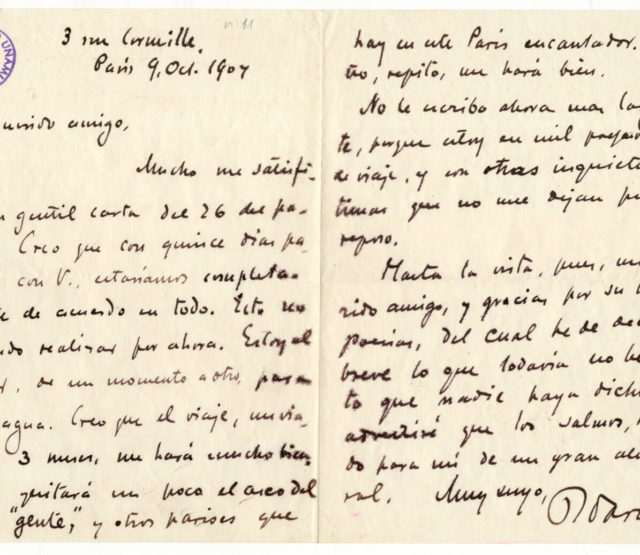 n. 11
UNAM
3 rue Corneille.
París 9, Oct. 1907
uerido amigo,
Mucho me satisfi-
gentil carta del 26 del pa-
Creo que con quince días pa-
con V., estaríamos completa-
te de acuerdo en todo. Esto no
edo realizar por ahora. Estoy al
r, de un momento a otro, para
agua. Creo que el viaje, un via-
3 meses, me hará mucho bien,
quitará un poco el asco del
"gente", y otros parises que
hay en este París encantador.
ño, repito, me hará bien.
No le escribo ahora mas la
te, porque estoy en mil prepar
de viaje, y con otras inquiet
timas que no me dejan
reposo.
Hasta la vista, pues,
rido amigo, y gracias por su
poesías, del cual he de de
breve lo que todavía no he
to que nadie haya dich
advertiré que los salmos,
do para mí de un gran
ral. Muy suyo,
R Dar